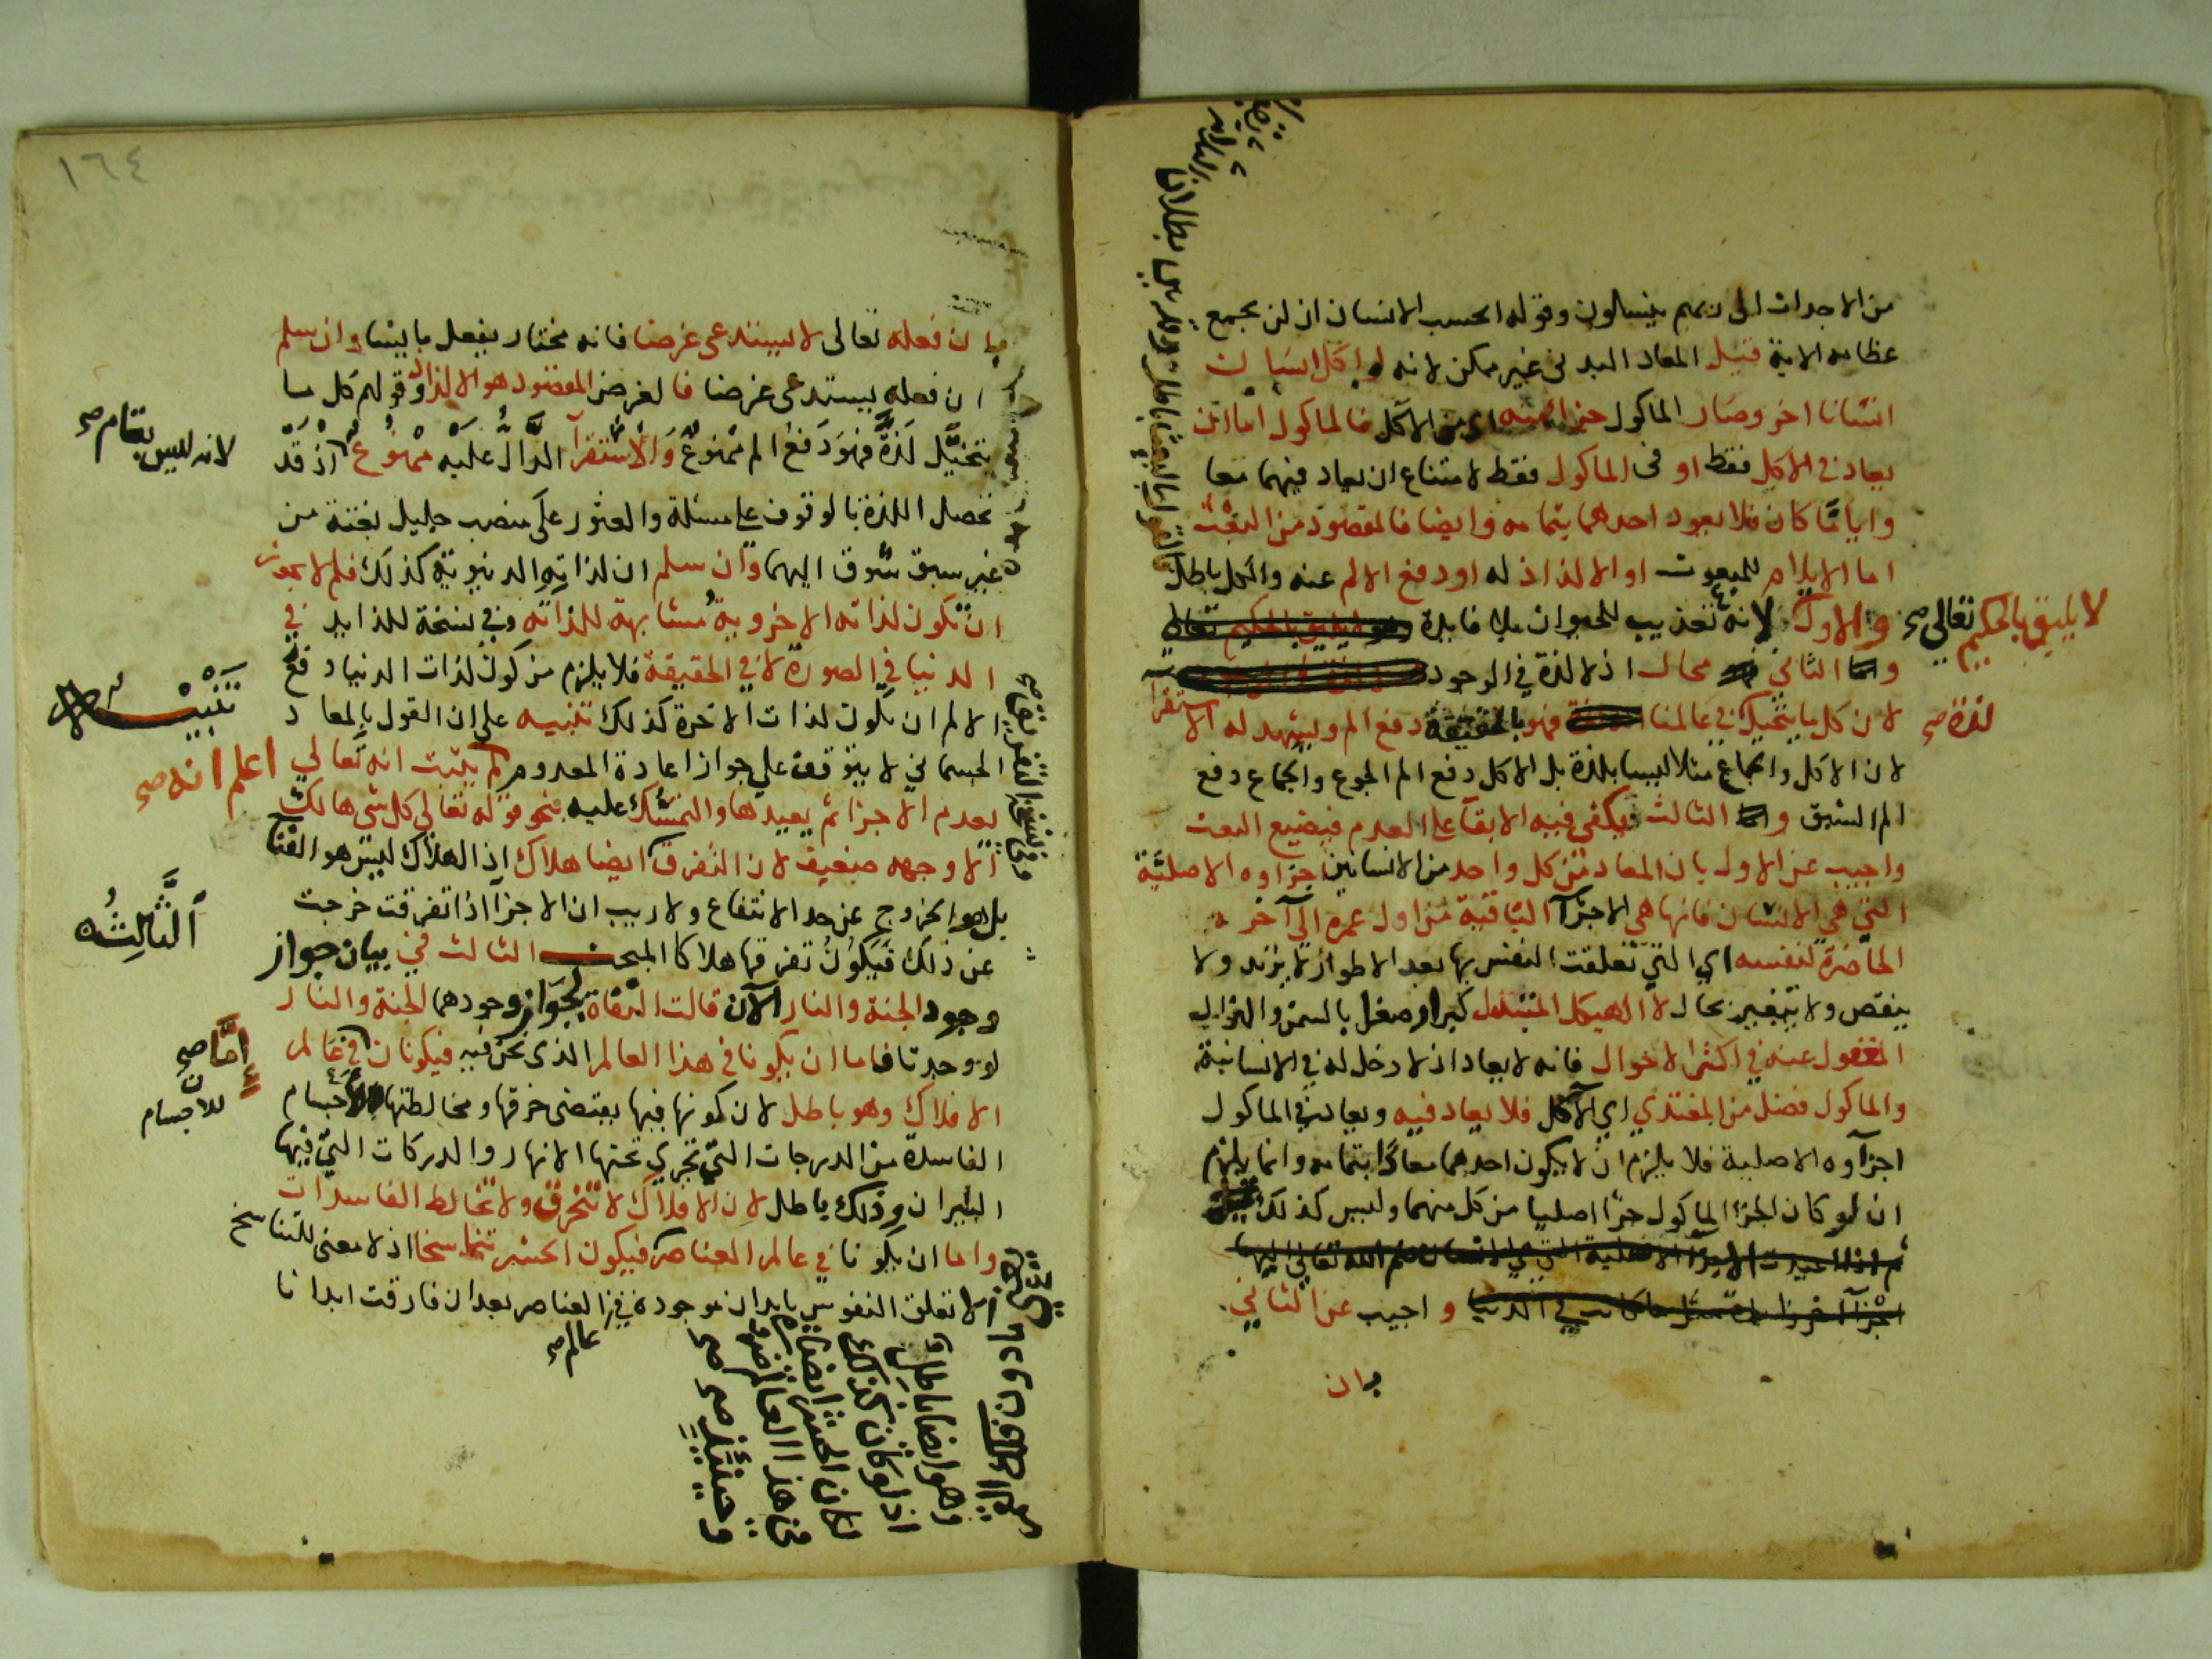 من الاجداث الى ربهم ينسلون وقوله ايحسب الانسان ان لن نجمع
عظامه الاية قيل المعاد البدنى غير ممكن لانه لو اكل انسان
انسانا اخر وصار الماكول جزا منه اى من الآكل فالماكول اما ان
يعاد في الاكل فقط او فى الماكول فقط لامتناع ان يعاد فيهما معا
واياما كان فلا يعود احدهما بتمامه وايضا فالمقصود من البعث
اما الايلام للمبعوث او الالذاذ له او دفع الالم عنه والكل باطل
والاول لانه تعذيب للحيوان بلا فايدة
لا يليق بالحكيم تعالى صح
والثانى محال اذ لا لذة في الوجود
لان كل ما يتخيل في عالمنا لذة صح فهو بالحقيقة دفع الم ويشهد له الاستقرآ
لان الاكل والجماع مثلا ليسا بلذة بل الاكل دفع الم الجوع والجماع دفع
الم الشبق والثالث يكفى فيه الابقآ على العدم فيضيع البعث
واجيب عن الاول بان المعاد من كل واحد من الانسانين اجزاوه الاصلية
التي هي الانسان فانها هي الاجزآ الباقية من اول عمره الى آخره
الحاضرة لنفسه اي التي تعلقت النفس بها بعد الاطوار لا يزيد ولا
ينقص ولا يتغير بحال لا الهيكل المتبدل كبرا وصغرا بالسمن والهزال
المغفول عنه في اكثر الاحوال فانه لا يعاد اذ لا دخل له في الانسانية
والماكول فضل من المغتذي اي الآكل فلا يعاد فيه ويعاد في الماكول
اجزآوه الاصلية فلا يلزم ان لا يكون احدهما معادا بتمامه وانما يلزم
ان لو كان الجزا الماكول جزا اصليا من كل منهما وليس كذلك
واجيب عن الثاني
بان
١٦٤
بان فعله تعالى لا يستدعى غرضا فانه مختار يفعل ما يشا وان سلم
ان فعله يستدعى غرضا فالغرض المقصود هو الالذاذ وقولهم كل ما
يتخيل لذة فهو دفع الم ممنوع والاستقرآ الدال عليه ممنوع اذ قد
لانه ليس بتام صح
تحصل اللذة بالوقوف على مسئلة والعثور على منصب جليل بغتة من
غير سبق شوق اليهما وان سلم ان لذاته الدنيوية كذلك فلم لا يجوز
ان تكون لذاته الاخروية مشابهة للذاته وفي نسخة للذايذ في
الدنيا في الصورة لا في الحقيقة فلا يلزم من كون لذات الدنيا دفع
الالم ان يكون لذات الاخرة كذلك تنبيه على ان القول بالمعاد
تنبيه
الجسماني لا يتوقف على جواز اعادة المعدوم لم يثبت انه تعالى
اعلم انه صح
يعدم الاجزا ثم يعيدها والتمسك عليه بنحو قوله تعالى كل شى هالك
الا وجهه ضعيف لان التفرق ايضا هلاك اذ الهلاك ليس هو الفنا
بل هو الخروج عن حد الانتفاع ولا ريب ان الاجزآ اذا تفرقت خرجت
عن ذلك فيكون تفرقها هلاكا المبحث الثالث في بيان جواز
الثالث
وجود الجنة والنار الآن قالت النفاة لجواز وجودهما الجنة والنار
لو وجدتا فاما ان يكونا في هذا العالم الذى نحن فيه فيكونان في عالم
إما صح
الافلاك وهو باطل لان كونها فيها يقتضى خرقها ومخالطتها
للاجسام
الفاسدة من الدرجات التي تجري تحتها الانهار والدركات التي فيها
النيران وذلك باطل لان الافلاك لا تنخرق ولا تخالط الفاسدات
واما ان يكونا في عالم العناصر فيكون الحشر تناسخا اذ لا معنى للتناسخ
الا تعلق النفوس بابدان موجودة في العناصر بعد ان فارقت ابدانا
عالم صح
وهو ايضا باطل
اذ لو كان كذلك
لكان الحشر ايضا
في هذا العالم
وحينئذ صح